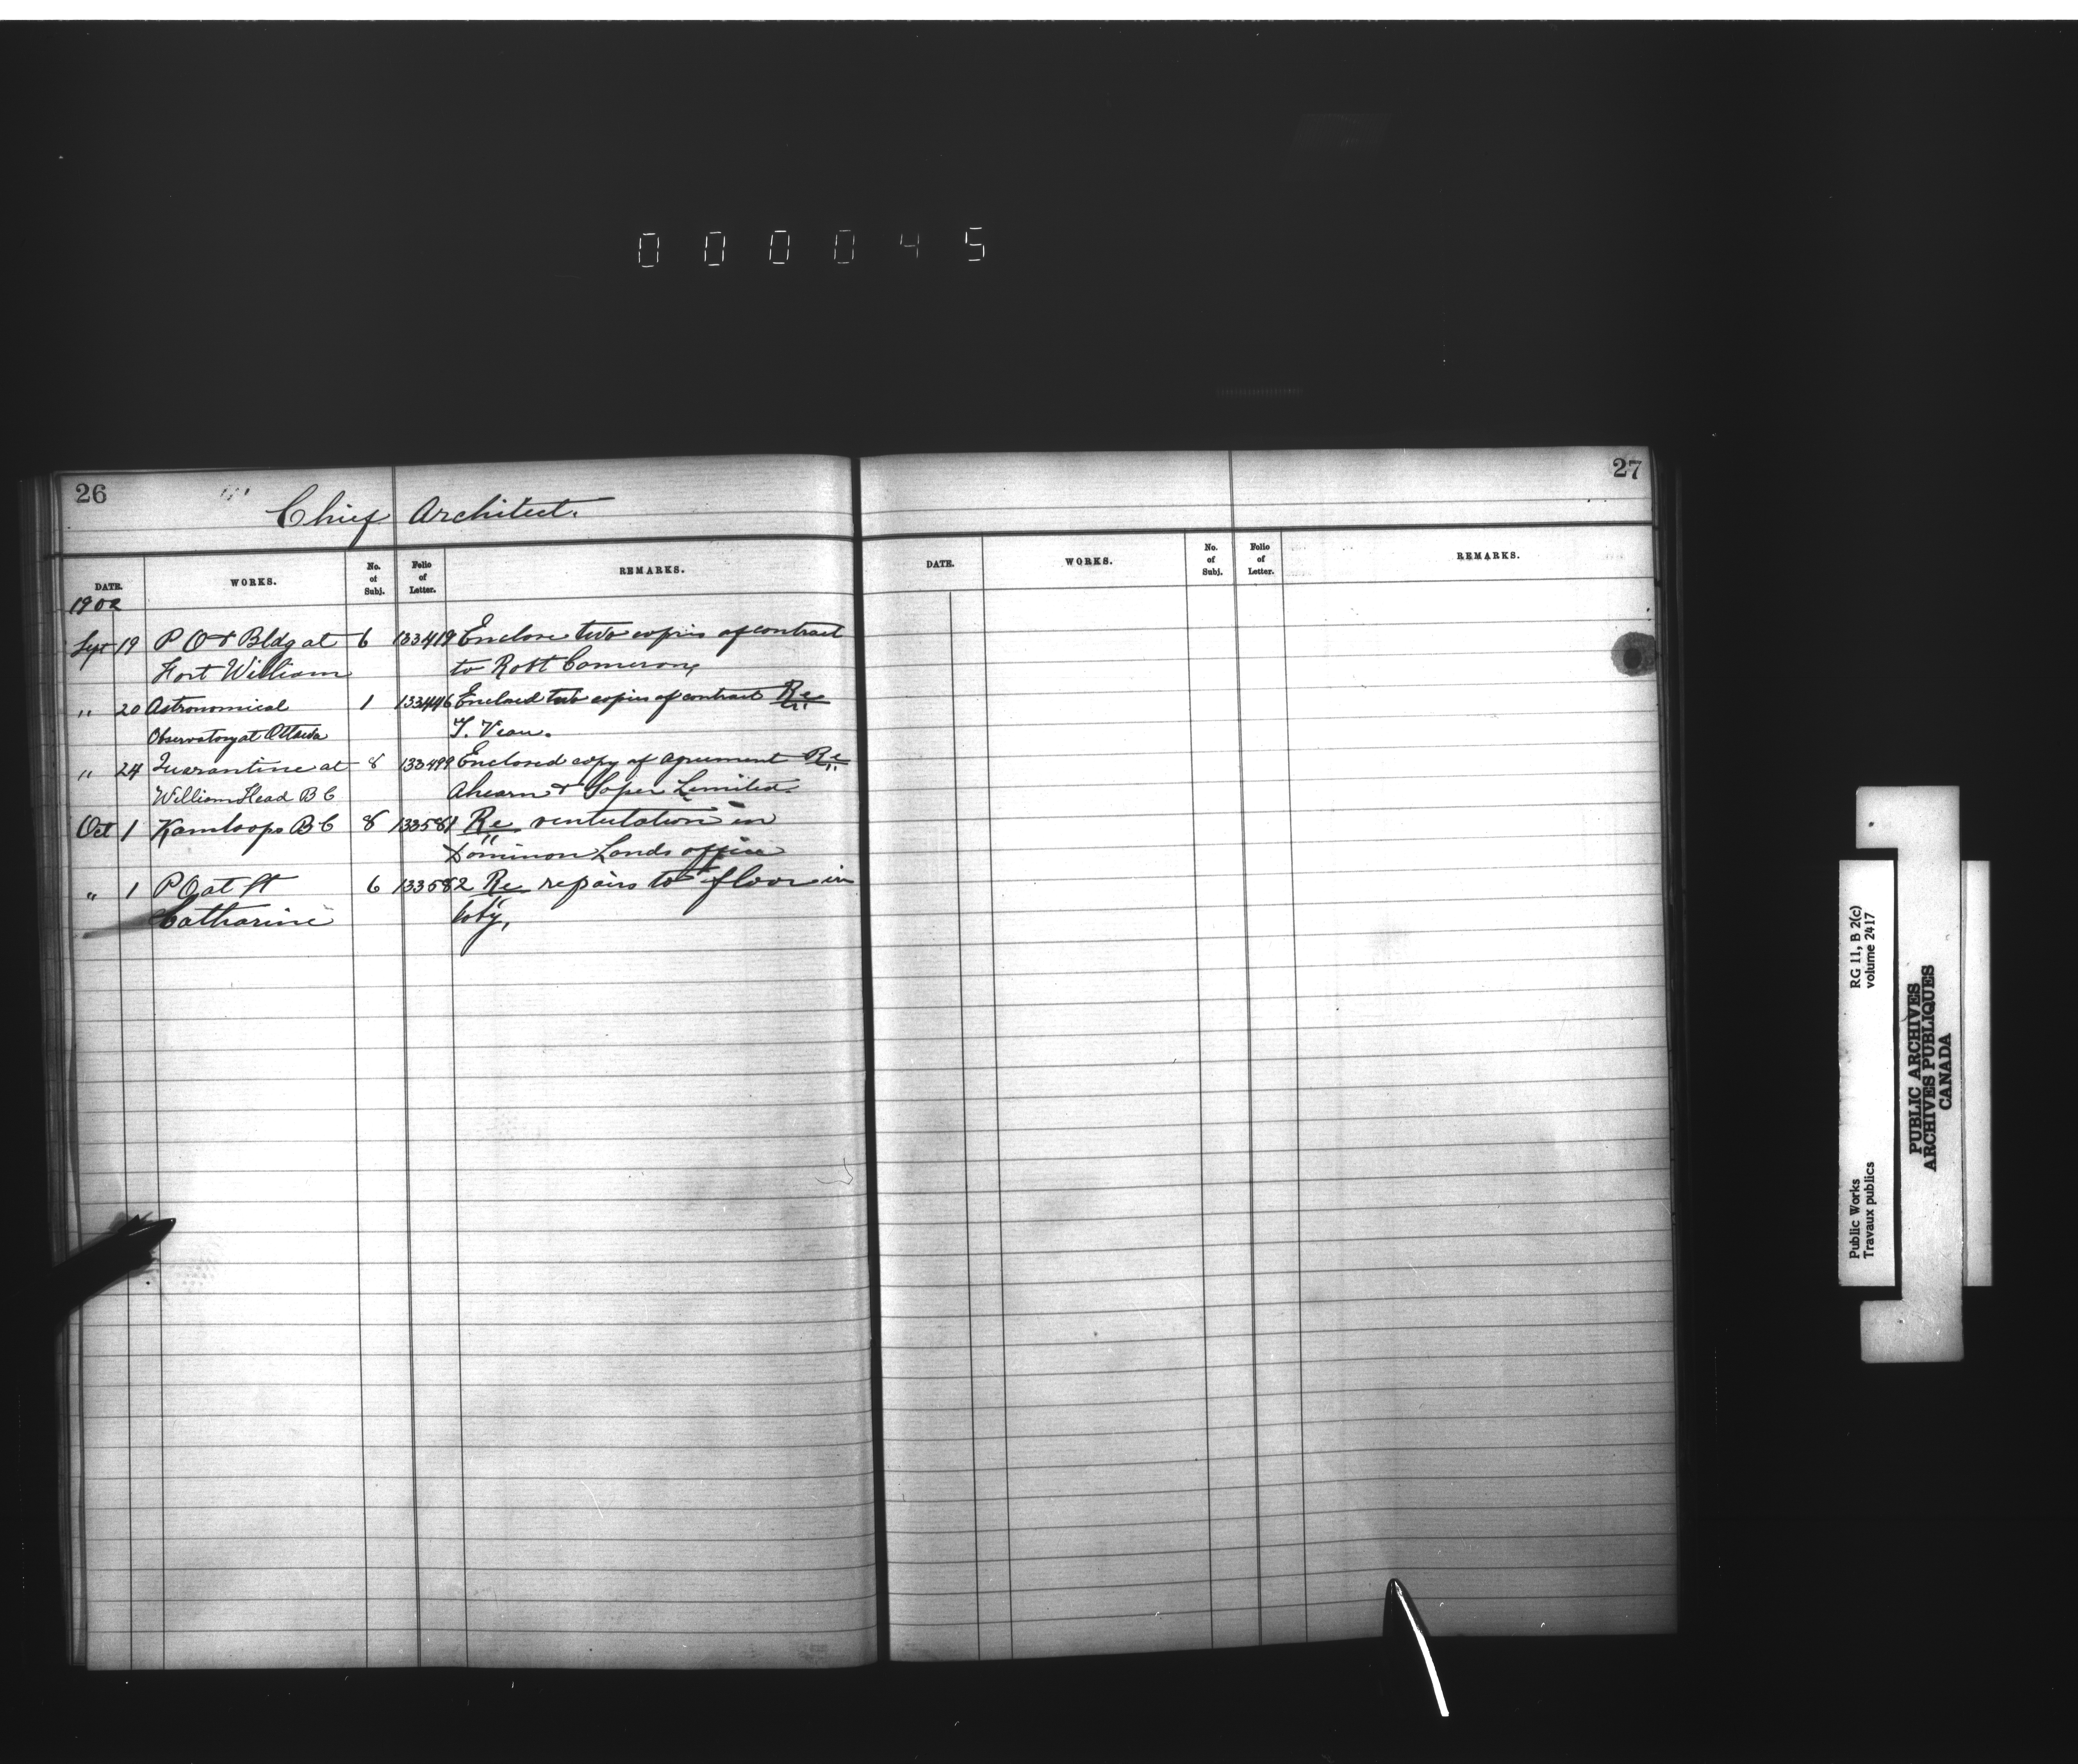 000045
26
Chief Architect.
DATE. WORKS. No. of Subj. Folio of Letter. REMARKS.
1902
Sept 19 P O & Bldg at 6 133419 Enclose two copies of contract
Fort William to Robt Cameron,
" 20 Astronomical 1 133446 Enclosed two copies of contract Re
Observatory at Ottawa T. Viau.
" 24 Quarantine at 8 133499 Enclosed copy of agreement Re
William Head B C Ahearn & Soper Limited.
Oct 1 Kamloops B C 8 133581 Re ventutation in
Dominon Lands office
" 1 P O at St 6 133582 Re repairs to floor in
Catharine loby,
27
DATE. WORKS. No. of Subj. Folio of Letter. REMARKS.
RG 11, B 2(c)
volume 2417
Public Works
Travaux publics
PUBLIC ARCHIVES
ARCHIVES PUBLIQUES
CANADA